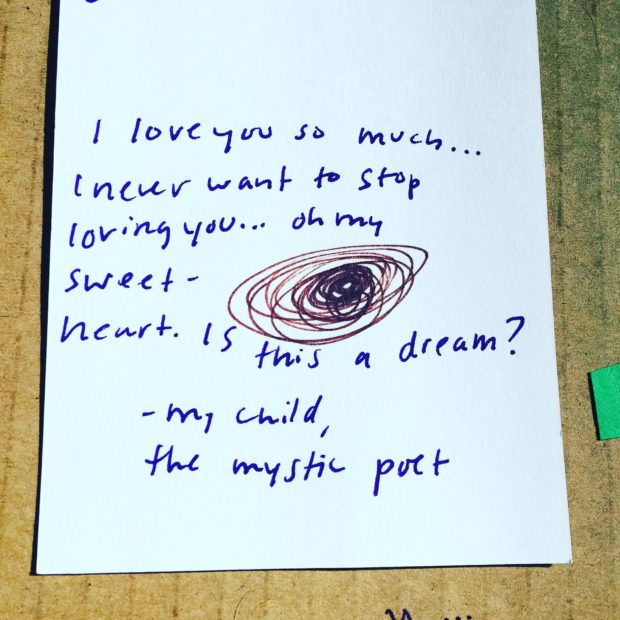 I love you so much...
I never want to stop
loving you... oh my
sweet-
heart. Is this a dream?
- my child,
the mystic poet